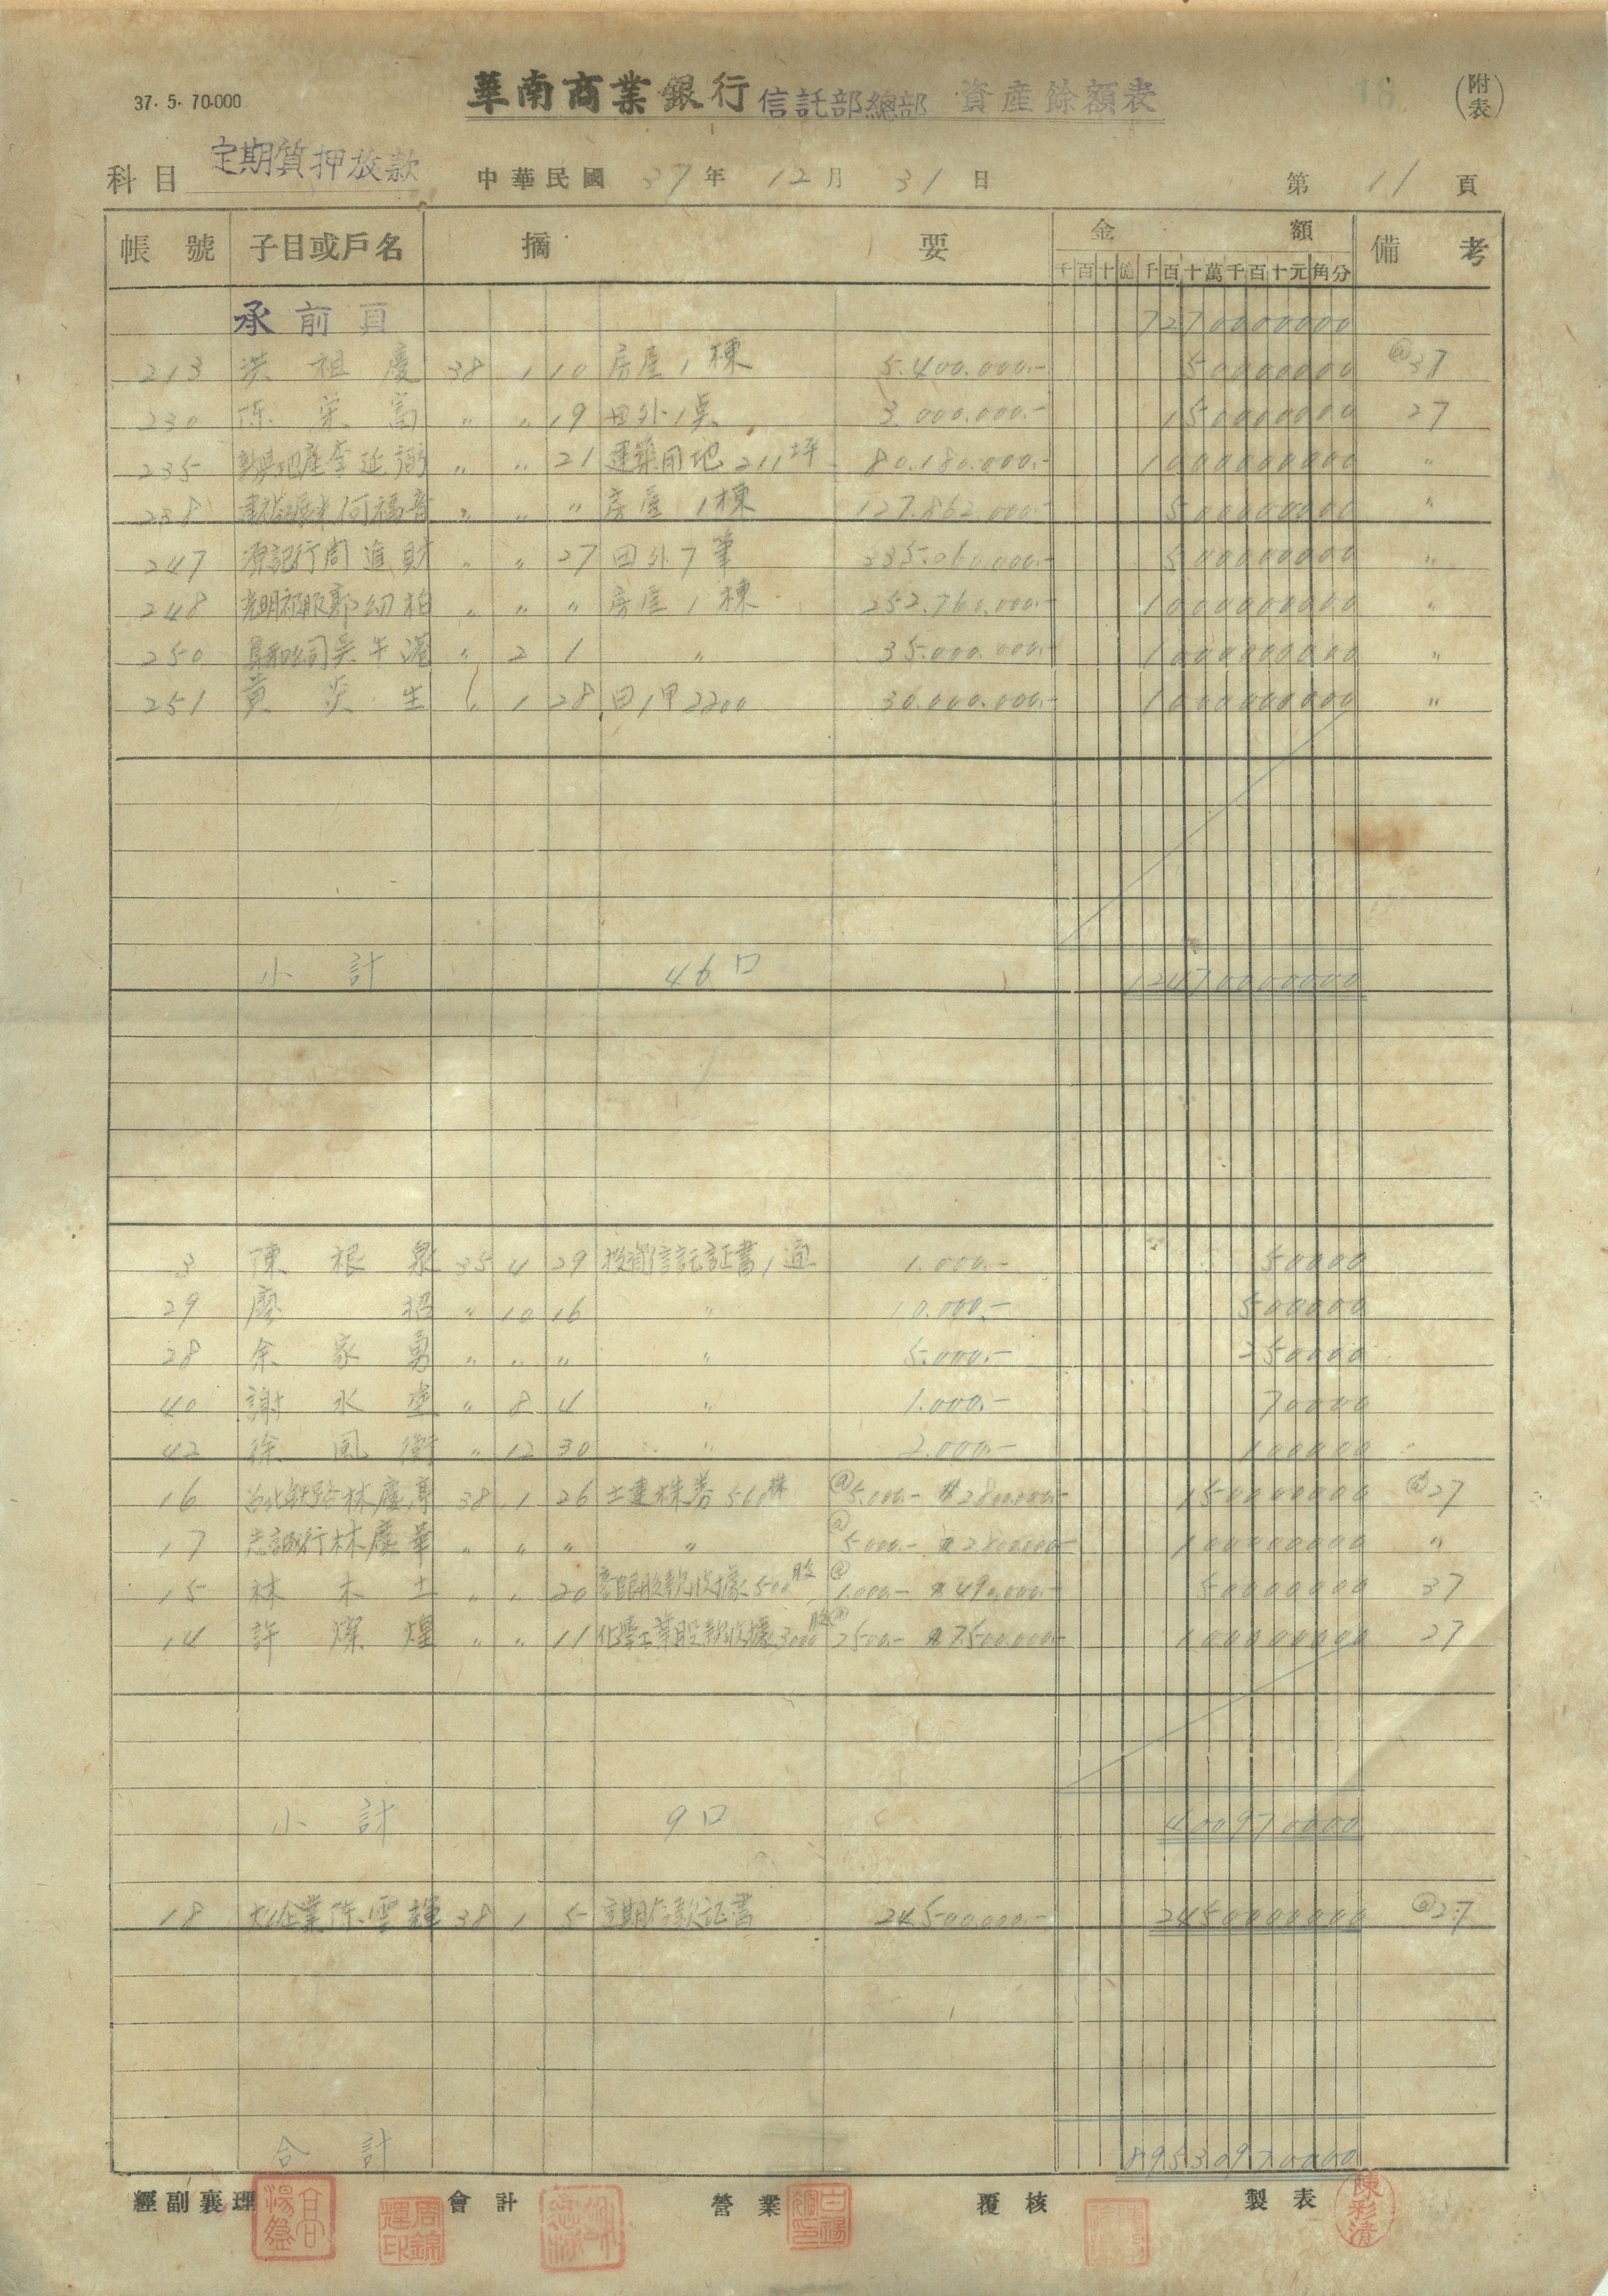 37. 5. 70.000
華南商業銀行 信託部總部 資產餘額表
18
(附表)
科目 定期質押放款 中華民國 37 年 12 月 31 日 第 11 頁
帳號 子目或戶名 摘要 金額 備考
千百十億千百十萬千百十元角分
承前頁 72700000000
213 洪祖慶 38 1 10 房屋1棟 5.400.000.- 50000000 @37
230 陈荣富 〃 〃 19 田外1 3.000.000.- 150000000 27
235 地產李延 〃 〃 21 建築用地211坪 80.180.000.- 10000000000 〃
238 何福音 〃 〃 〃 房屋1棟 127.862.000.- 5000000000 〃
247 源記行周進財 〃 〃 27 田外7筆 235.060.000.- 5000000000 〃
248 光明被服郭 柏 〃 〃 〃 房屋1棟 252.760.000.- 10000000000 〃
250 公司吳 〃 2 1 〃 35.000.000.- 10000000000 〃
251 黃炎生 〃 1 28 田1甲2200 30.000.000.- 10000000000 〃
小計 46口 124700000000
3 陳根泉 35 4 29 投資信託証書1通 1.000.- 50000
29 廖招 〃 10 16 〃 10.000.- 500000
28 余家勇 〃 〃 〃 〃 5.000.- 250000
40 謝水 〃 8 4 〃 1.000.- 70000
42 徐風衡 〃 12 30 〃 2.000.- 100000
16 台北鉄路林慶 38 1 26 土建株券560株 @5.000.- 2800.000.- 150000000 @27
17 行林慶華 〃 〃 〃 〃 @5.000.- 2800.000.- 100000000 〃
15 林木土 〃 〃 20 股款收據500股 @1.000.- 490.000.- 50000000 37
14 許燦煌 〃 〃 11 化學工業股款收據3000股 @2500.- 7.500.000.- 100000000 27
小計 9口 400970000
18 企業陈雲輝 38 1 5 定期存款证書 24.500.000.- 2450000000 @27
合計 89530970000
經副襄理 會計 營業 覆核 製表
周錦輝印
陳彩清